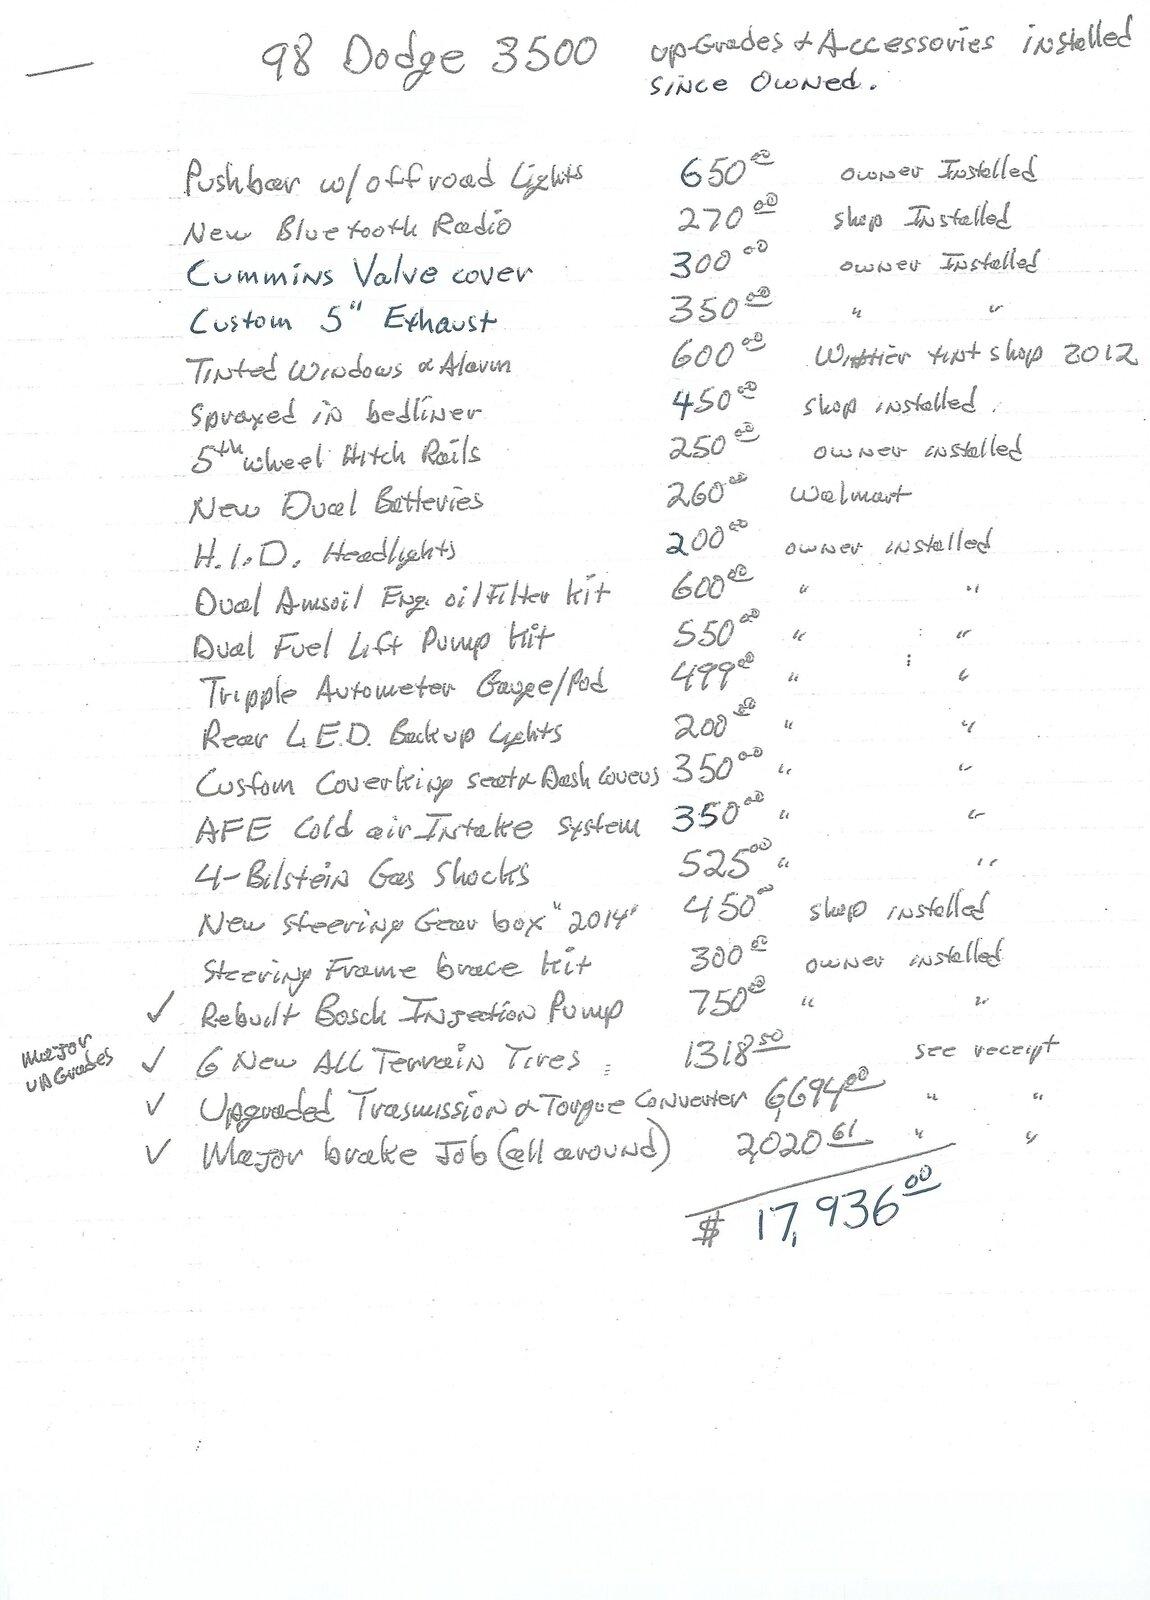 98 Dodge 3500 up-Grades & Accessories installed
since owned.
Pushbar w/offroad Lights 650.00 owner Installed
New Bluetooth Radio 270.00 shop Installed
Cummins Valve cover 300.00 owner Installed
Custom 5" Exhaust 350.00 " "
Tinted Windows & Alarm 600.00 tint shop 2012
Sprayed in bedliner 450.00 shop installed.
5th wheel Hitch Rails 250.00 owner installed
New Dual Batteries 260.00 Walmart
H.I.D. Headlights 200.00 owner installed
Dual Amsoil Eng. oil Filter kit 600.00 " "
Dual Fuel Lift Pump kit 550.00 " "
Tripple Autometer Gauge/Pod 499.00 " "
Rear L.E.D. Backup Lights 200.00 " "
Custom Coverking seat & Dash covers 350.00 " "
AFE Cold air Intake system 350.00 " "
4-Bilstein Gas Shocks 525.00 " "
New steering Gear box "2014" 450.00 shop installed
Steering Frame brace kit 300.00 owner installed
✓ Rebuilt Bosch Injection Pump 750.00 " "
Major
upGrades
✓ 6 New ALL Terrain Tires 1318.50 see receipt
✓ Upgraded Trasmission & Torque Converter 6,694.00 " "
✓ Major brake Job (all around) 2,020.61 " "
$ 17,936.00